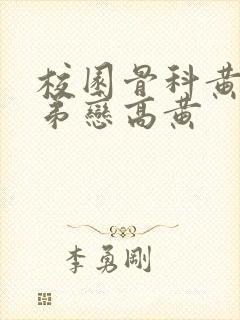 校園骨科黃
弟戀高黃
李勇剛